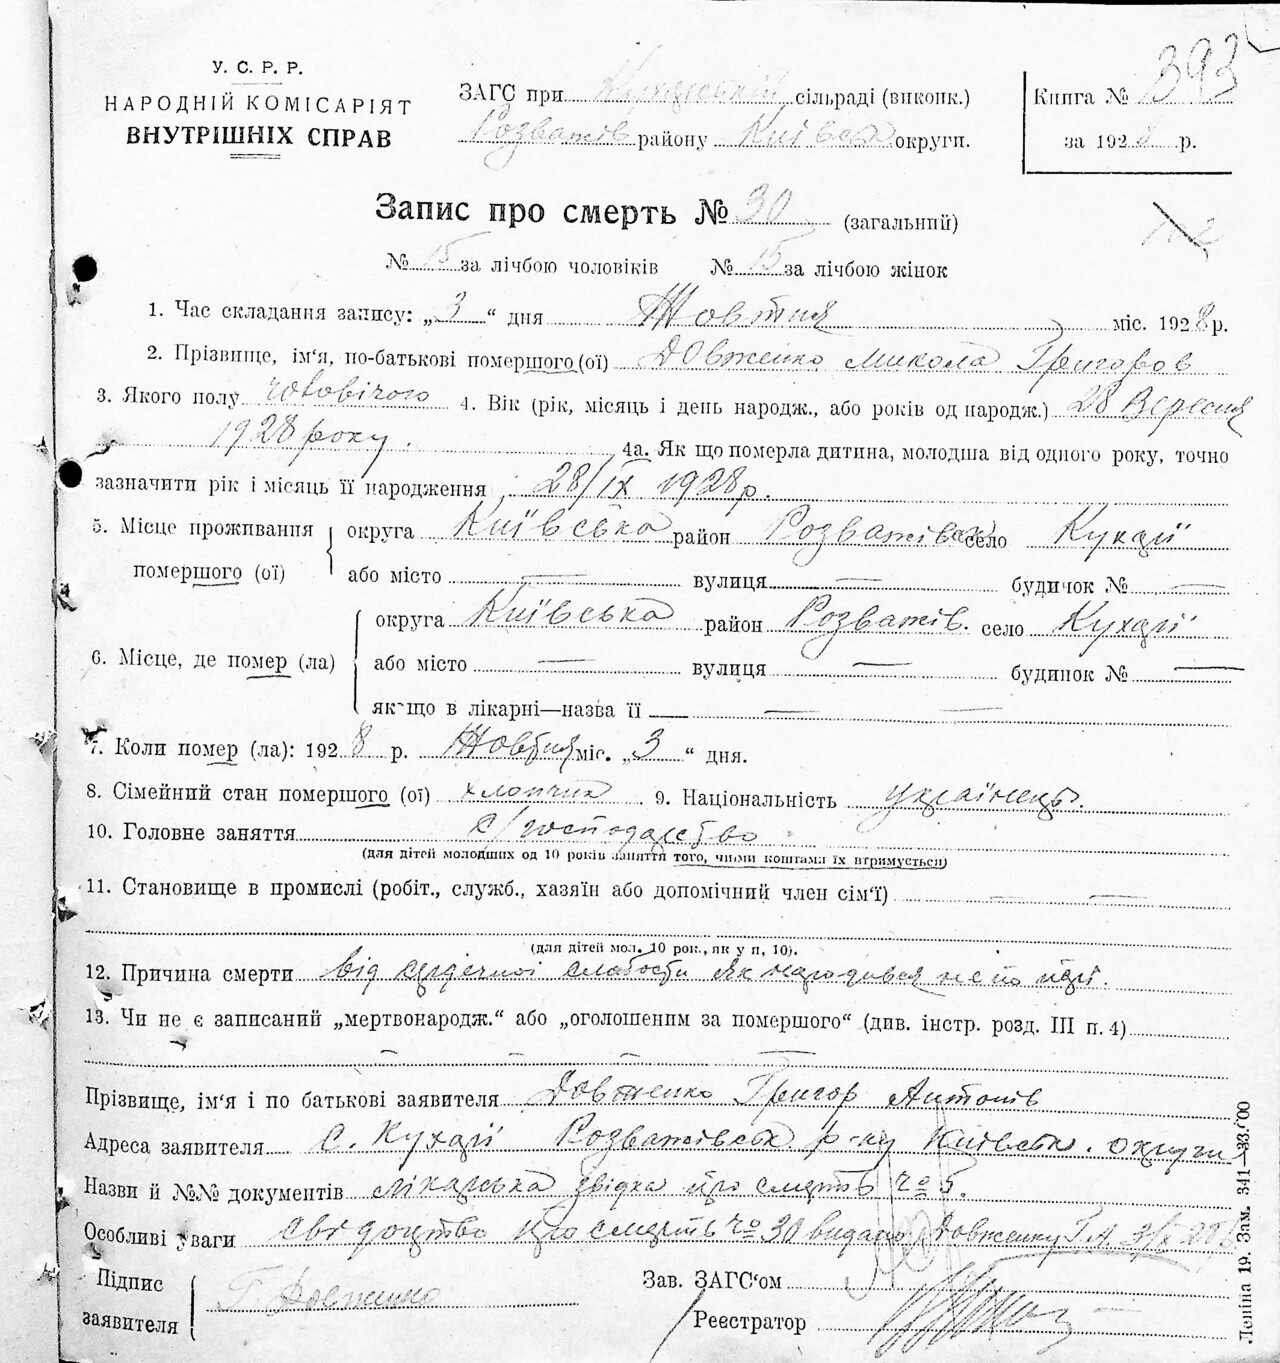 У. С. Р. Р.
НАРОДНІЙ КОМІСАРІЯТ
ВНУТРІШНІХ СПРАВ
ЗАГС при Кухарській сільраді (виконк.)
Розважів району Київськ округи.
Книга № 393
за 1928 р.
Запис про смерть № 30 (загальний)
№ 15 за лічбою чоловіків № 15 за лічбою жінок
1. Час складання запису: „3“ дня Жовтня міс. 1928 р.
2. Прізвище, ім‘я, по-батькові помершого (ої) Довженко Микола Григоров
3. Якого полу чоловічого 4. Вік (рік, місяць і день народж., або років од народж.) 28 Вересня
1928 року. 4а. Як що померла дитина, молодша від одного року, точно
зазначити рік і місяць її народження 28/IX 1928 р.
5. Місце проживання помершого (ої) округа Київська район Розважівськ село Кухарі
або місто — вулиця — будинок № —
6. Місце, де помер (ла) округа Київська район Розважів. село Кухарі
або місто — вулиця — будинок № —
якщо в лікарні—назва її — —
7. Коли помер (ла): 1928 р. Жовтня міс. „3“ дня.
8. Сімейний стан помершого (ої) хлопчик 9. Національність українець.
10. Головне заняття с/господарство
(для дітей молодших од 10 років заняття того, чиїми коштами їх втримується)
11. Становище в промислі (робіт., служб., хазяїн або допомічний член сім‘ї) — —
(для дітей мол. 10 рок., як у п, 10).
12. Причина смерти від сердечної слабости як народився не
13. Чи не є записаний „мертвонародж.“ або „оголошеним за помершого“ (див. інстр. розд. III п. 4)
— — — —
Прізвище, ім‘я і по батькові заявителя Довженко Григор Антонів
Адреса заявителя с. Кухарі Розважівськ р-ну Київськ. округи
Назви й №№ документів лікарська звідка про смерть № 5.
Особливі уваги свідоцтво про смерть № 30 видано Довженку Г. А. 3/X 28 р.
Підпис заявителя Г. Довженко
Зав. ЗАГС‘ом
Реєстратор
Леніна 19. Зам. 341—33.000